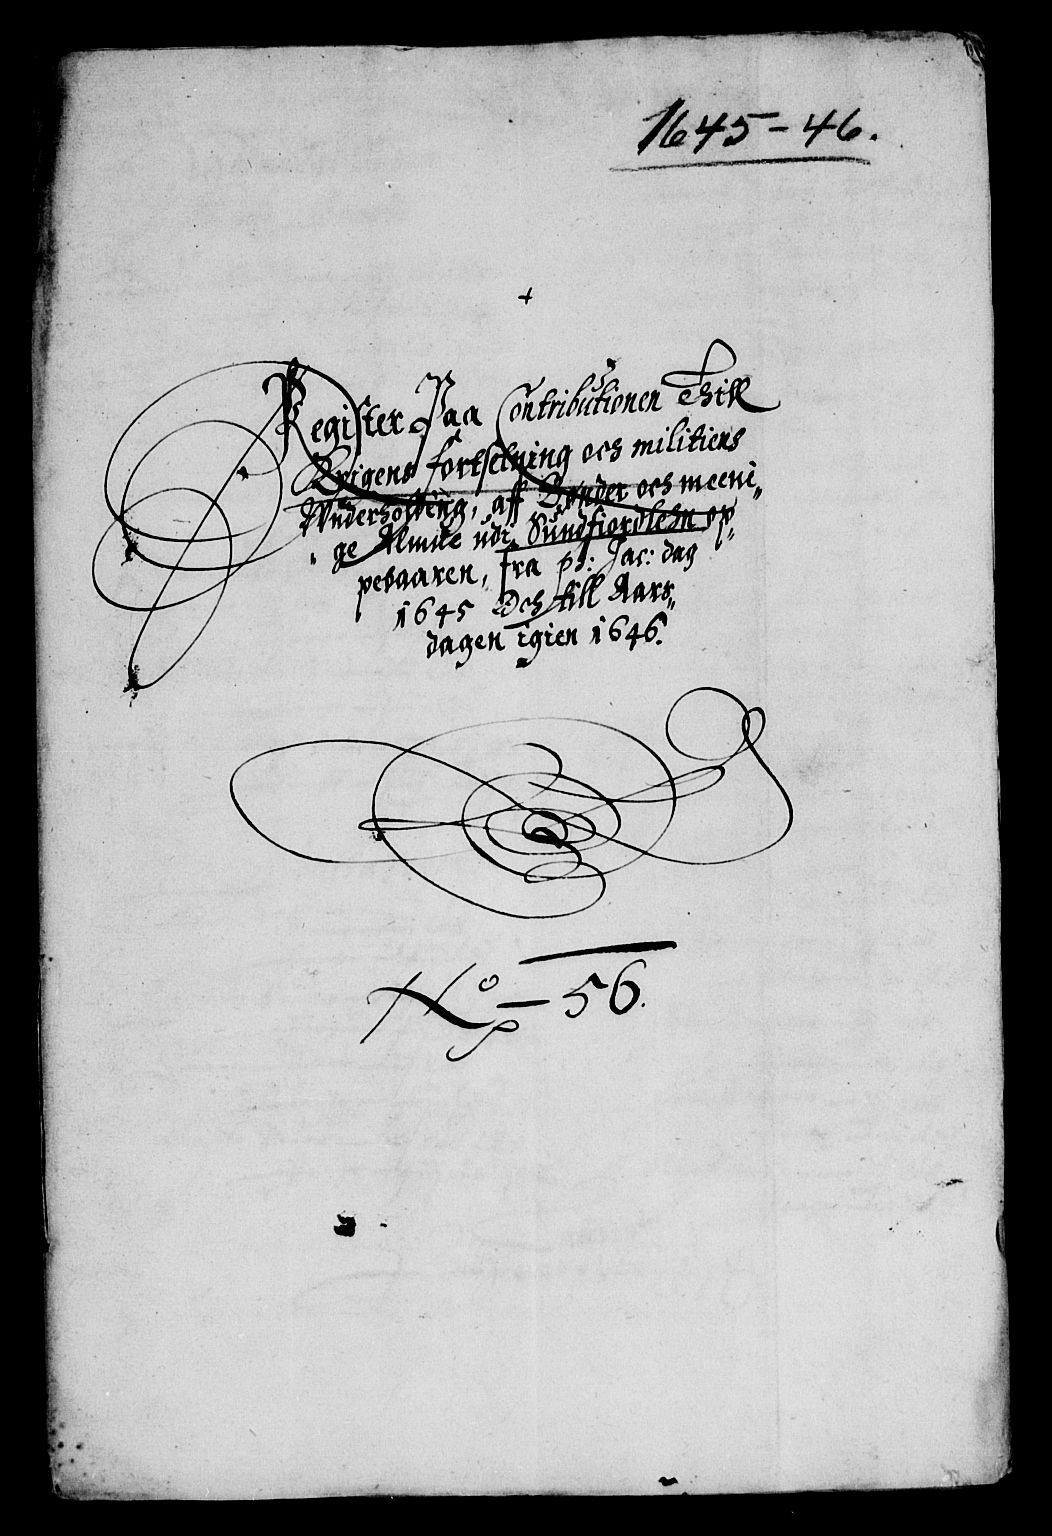 1645-46.
+
Register Paa Contributionen Thill
Krigens fortsetning och militiens
Wnderholding, aff Bønder och meeni„
ge Almue udi Sundfiordlehn op„
pebaaren, fra pɔ: Jac: dag
1645 Och till Aars„
dagen igien 1646.
No – 56.